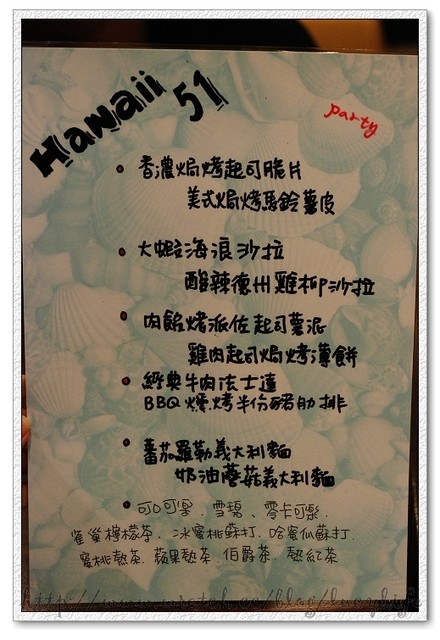 Hawaii 51
party
香濃焗烤起司脆片
美式焗烤馬鈴薯皮
大蝦海浪沙拉
酸辣德州雞柳沙拉
肉餡烤派佐起司薯泥
雞肉起司焗烤薄餅
經典牛肉法士達
BBQ燻烤半份豬肋排
蕃茄羅勒義大利麵
奶油蘑菇義大利麵
可口可樂、雪碧、零卡可樂、
雀巢檸檬茶、冰蜜桃蘇打、哈蜜瓜蘇打、
蜜桃熱茶、蘋果熱茶 伯爵茶、熱紅茶